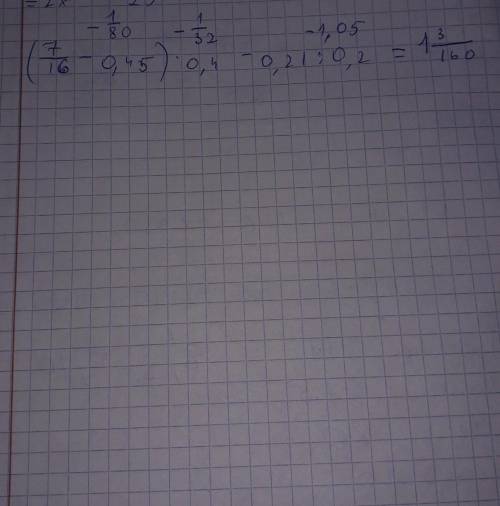 = 2x
- 1/80 - 1/32 - 1,05
(7/16 - 0,45) : 0,4 - 0,21 : 0,2 = 1 3/160